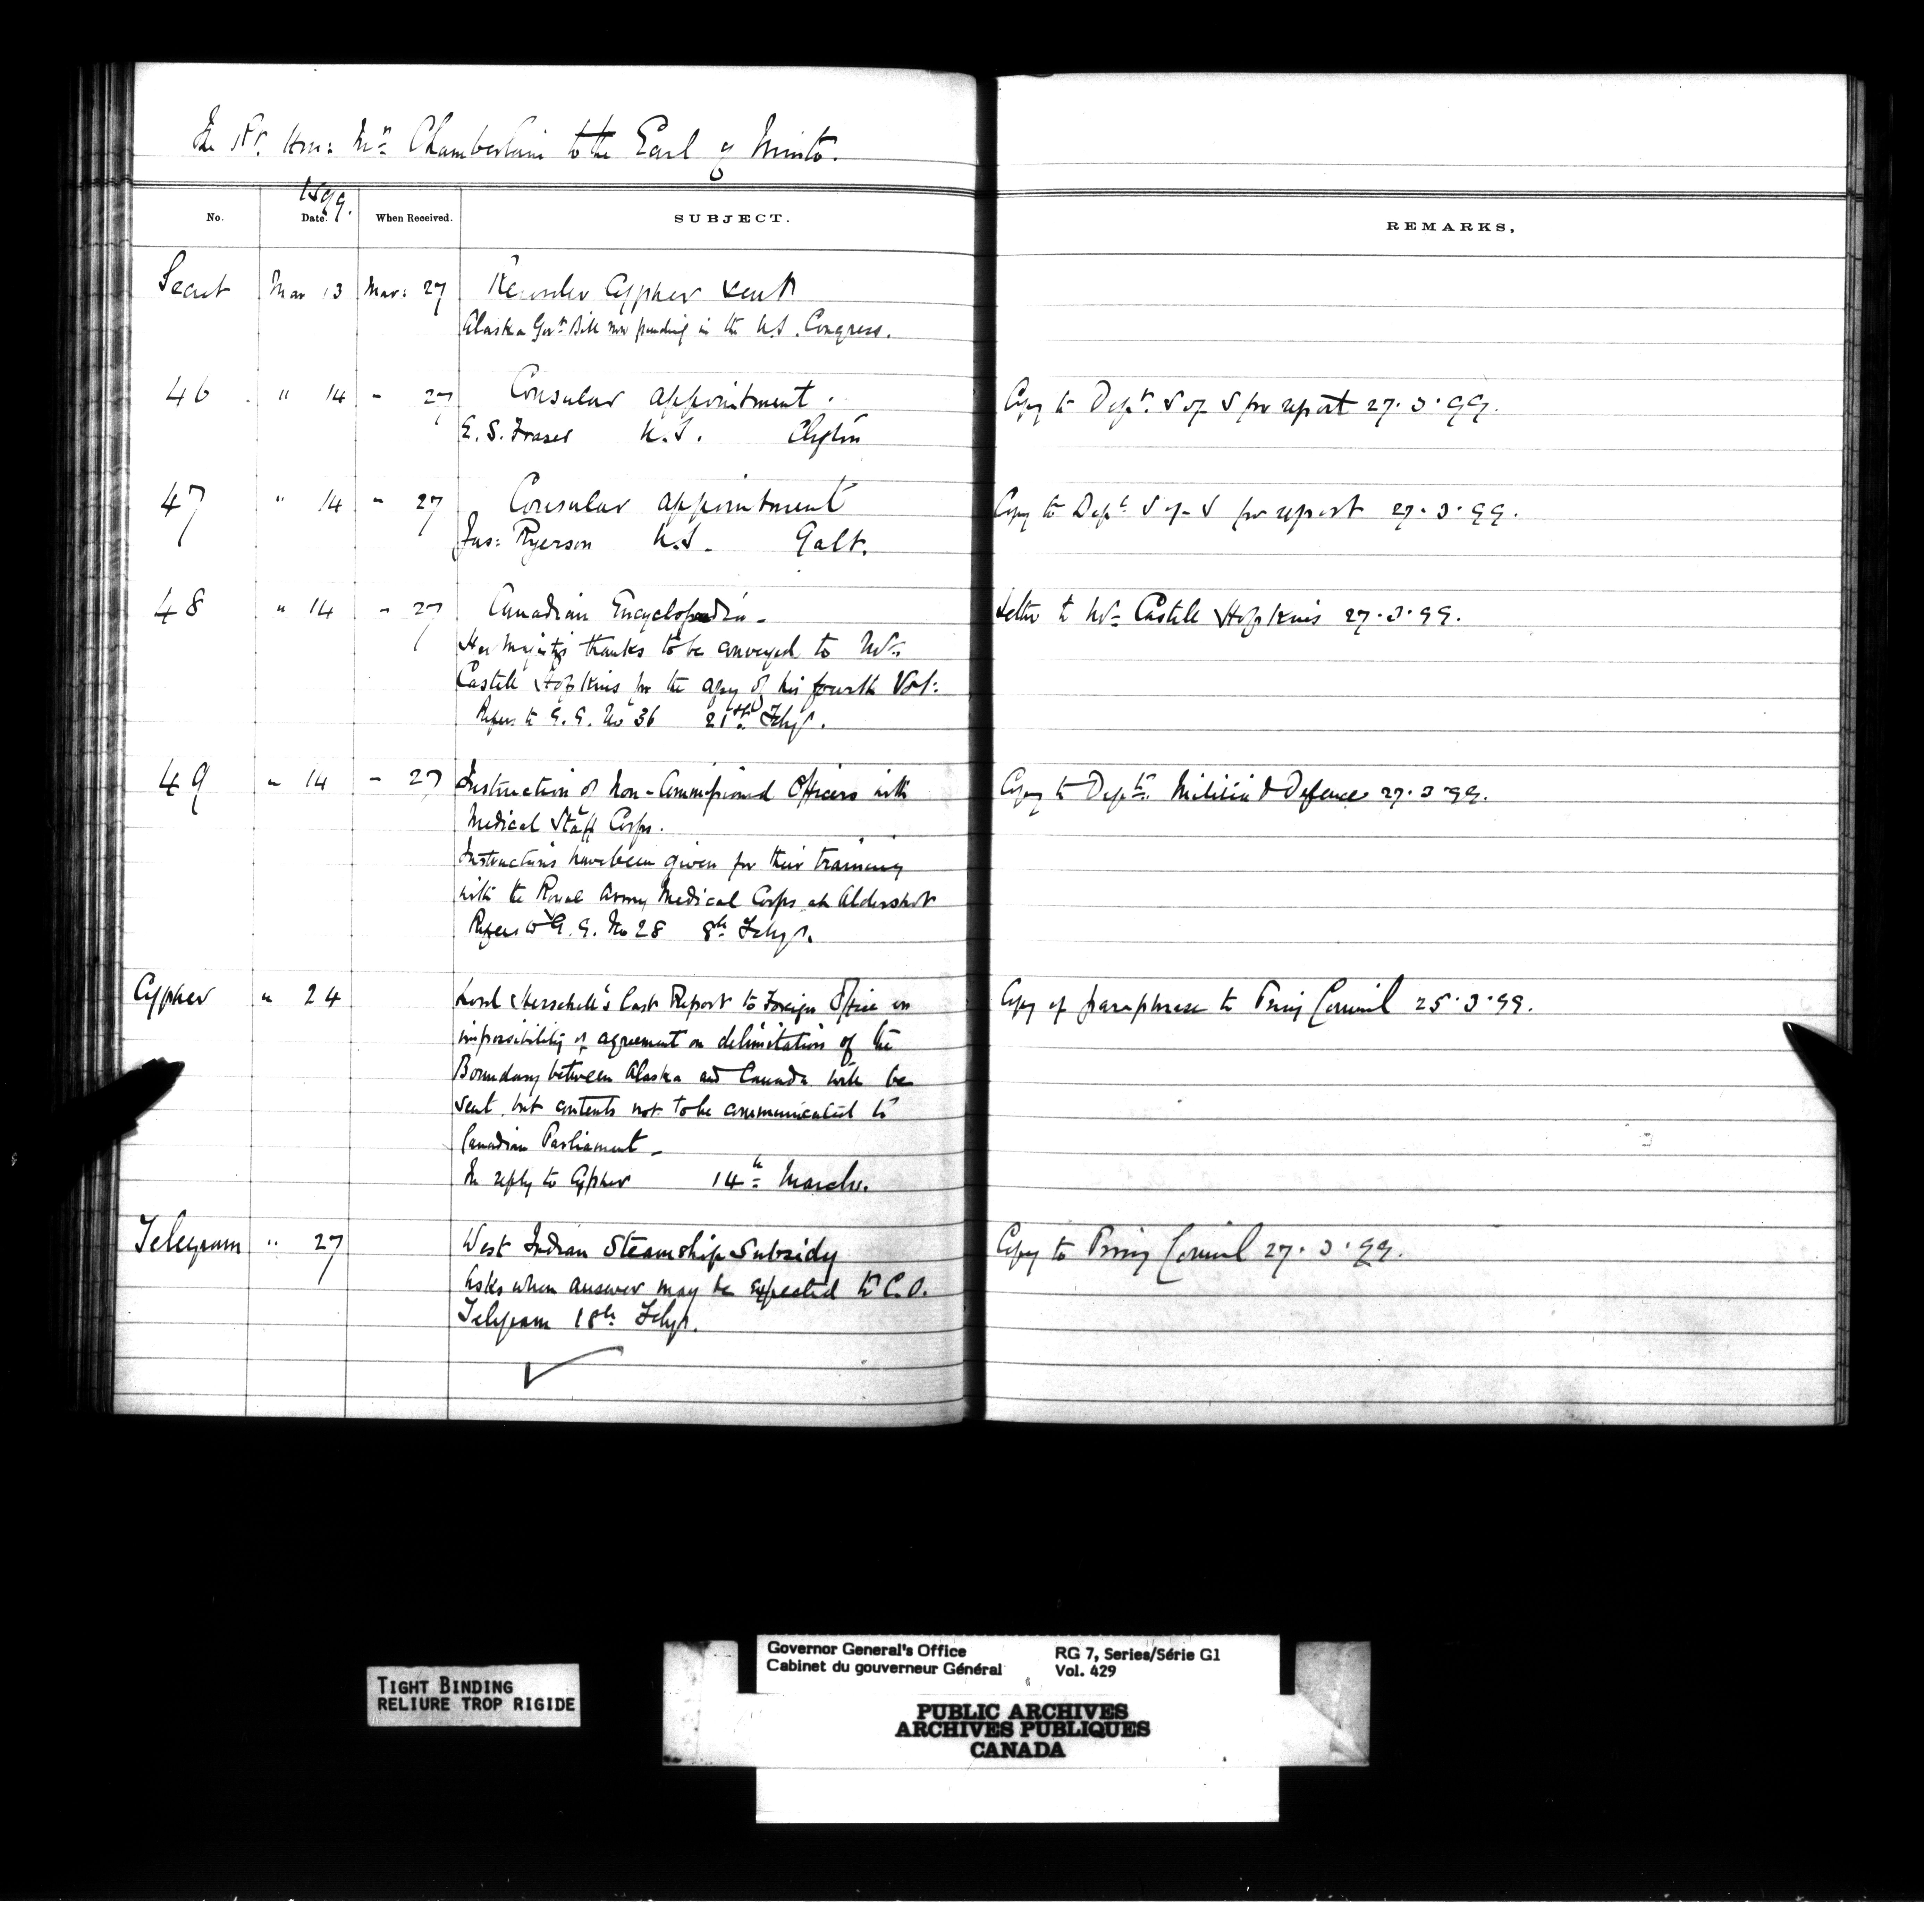 The Rt. Hon: Mr. Chamberlain to the Earl of Minto.
1899.
No. Date. When Received. SUBJECT. REMARKS.
Secret Mar 13 Mar: 27 Cypher sent
Alaska Govt. Bill now pending in the U.S. Congress.
46 " 14 " 27 Consular appointment. Copy to Dept. S of S for report 27.3.99.
E. S. Fraser U.S. Clifton
47 " 14 " 27 Consular appointment Copy to Dept. S of S for report 27.3.99.
Jas: Ryerson U.S. Galt.
48 " 14 " 27 Canadian Encyclopædia - Letter to Mr. Castell Hopkins 27.3.99.
Her Majesty's thanks to be conveyed to Mr.
Castell Hopkins for the copy of his fourth Vol:
Refers to G.G. No 36 21st Feby.
49 " 14 " 27 Instruction of Non-Commissioned Officers with Copy to Dept. Militia & Defence 27.3.99.
Medical Staff Corps.
Instructions have been given for their training
with the Royal Army Medical Corps at Aldershot
Refers to G.G. No 28 8th Feby.
Cypher " 24 Lord Herschell's last Report to Foreign Office on Copy of paraphrase to Privy Council 25.3.99.
impossibility of agreement on delimitation of the
Boundary between Alaska and Canada will be
sent, but contents not to be communicated to
Canadian Parliament -
In reply to Cypher 14th March.
Telegram " 27 West Indian Steamship Subsidy Copy to Privy Council 27.3.99.
Asks when answer may be expected to C.O.
Telegram 18th Feby.
TIGHT BINDING
RELIURE TROP RIGIDE
Governor General's Office RG 7, Series/Série G1
Cabinet du gouverneur Général Vol. 429
PUBLIC ARCHIVES
ARCHIVES PUBLIQUES
CANADA